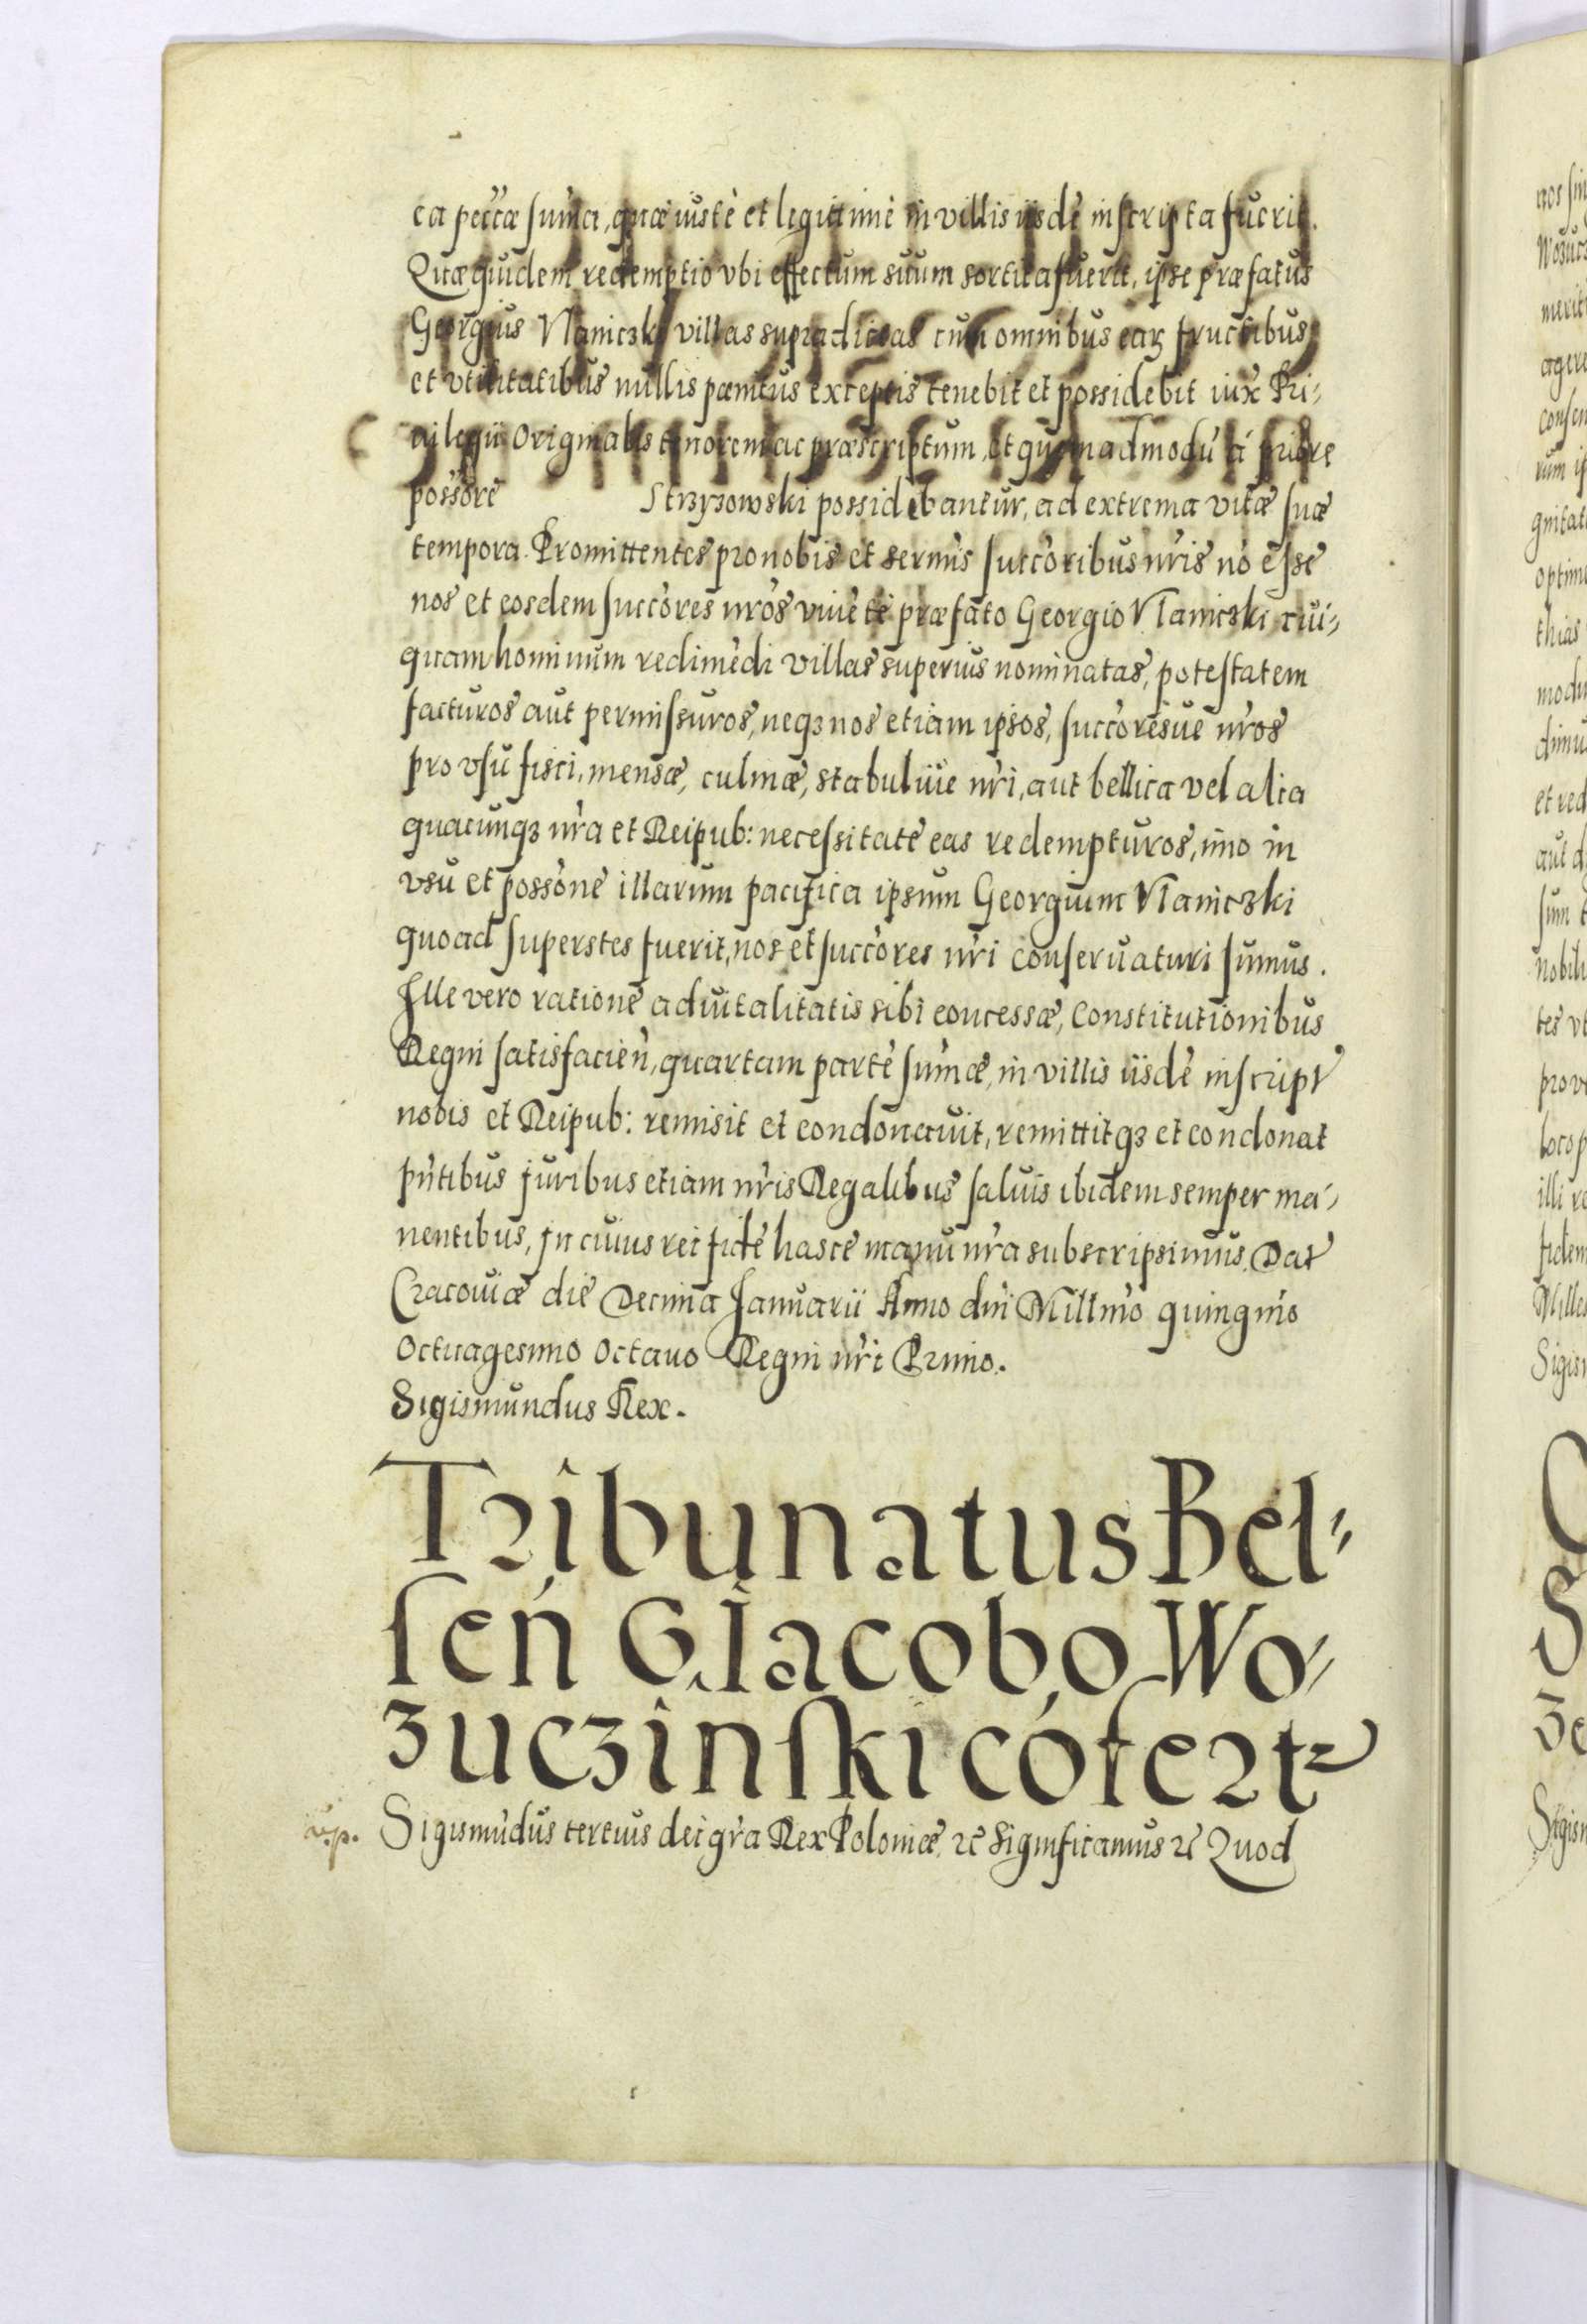 ca peccæ sum̀a, quæ iustè et legitimè in villis iisdẽ inscripta fuerit.
Quæquidem redemptio vbi effectum suum sortita fuerit, ipse præfatus
Georgius Vlaniczki villas supradictas cum omnibus earꝫ fructibus
et vtilitatibus nullis pænitus exceptis tenebit et possidebit iux̃ Pri-
uilegii Originalis tenorem ac præscriptum, et quemadmodũ á priore
possore Strzyzowski possidebantur, ad extrema vitæ suæ
tempora. Promittentes pro nobis et serm̃is succ̃oribus nr̃is nõ esse
nos et eosdem succ̃ores nr̃os viuẽte præfato Georgio Vlaniczki cui-
quam hominum redimẽdi villas superius nominatas, potestatem
facturos aut permissuros, neqꝫ nos etiam ipsos, succ̃oresue nr̃os
pro vsu fisci, mensæ, culinæ, stabuliue nr̃i, aut bellica vel alia
quacunqꝫ nr̃a et Reipub: necessitatẽ eas redempturos, imo in
vsu et possõne illarum pacifica ipsum Georgium Vlaniczki
quoad superstes fuerit, nos et succ̃ores nr̃i conseruaturi sumus.
Ille vero rationẽ aduitalitatis sibi concessæ, Constitutionibus
Regni satisfacieñ, quartam partẽ sum̃æ, in villis iisdẽ inscript
nobis et Reipub: remisit et condonauit, remittitqꝫ et condonat
pñtibus Juribus etiam nr̃is Regalibus saluis ibidem semper ma-
nentibus, In cuius rei fidẽ hasce manu nr̃a subscripsimus. Dat
Cracouiæ die Decima Januarii Anno dñi Millm̃o quingm̃o
Octuagesimo Octauo Regni nr̃i Primo.
Sigismundus Rex.
Tribunatus Bel-
señ G. Iacobo Wo-
zuczinski cõfert
Sigismũdus tertius dei gr̃a Rex Poloniæ ꝛc̃ Significamus ꝛc̃ Quod